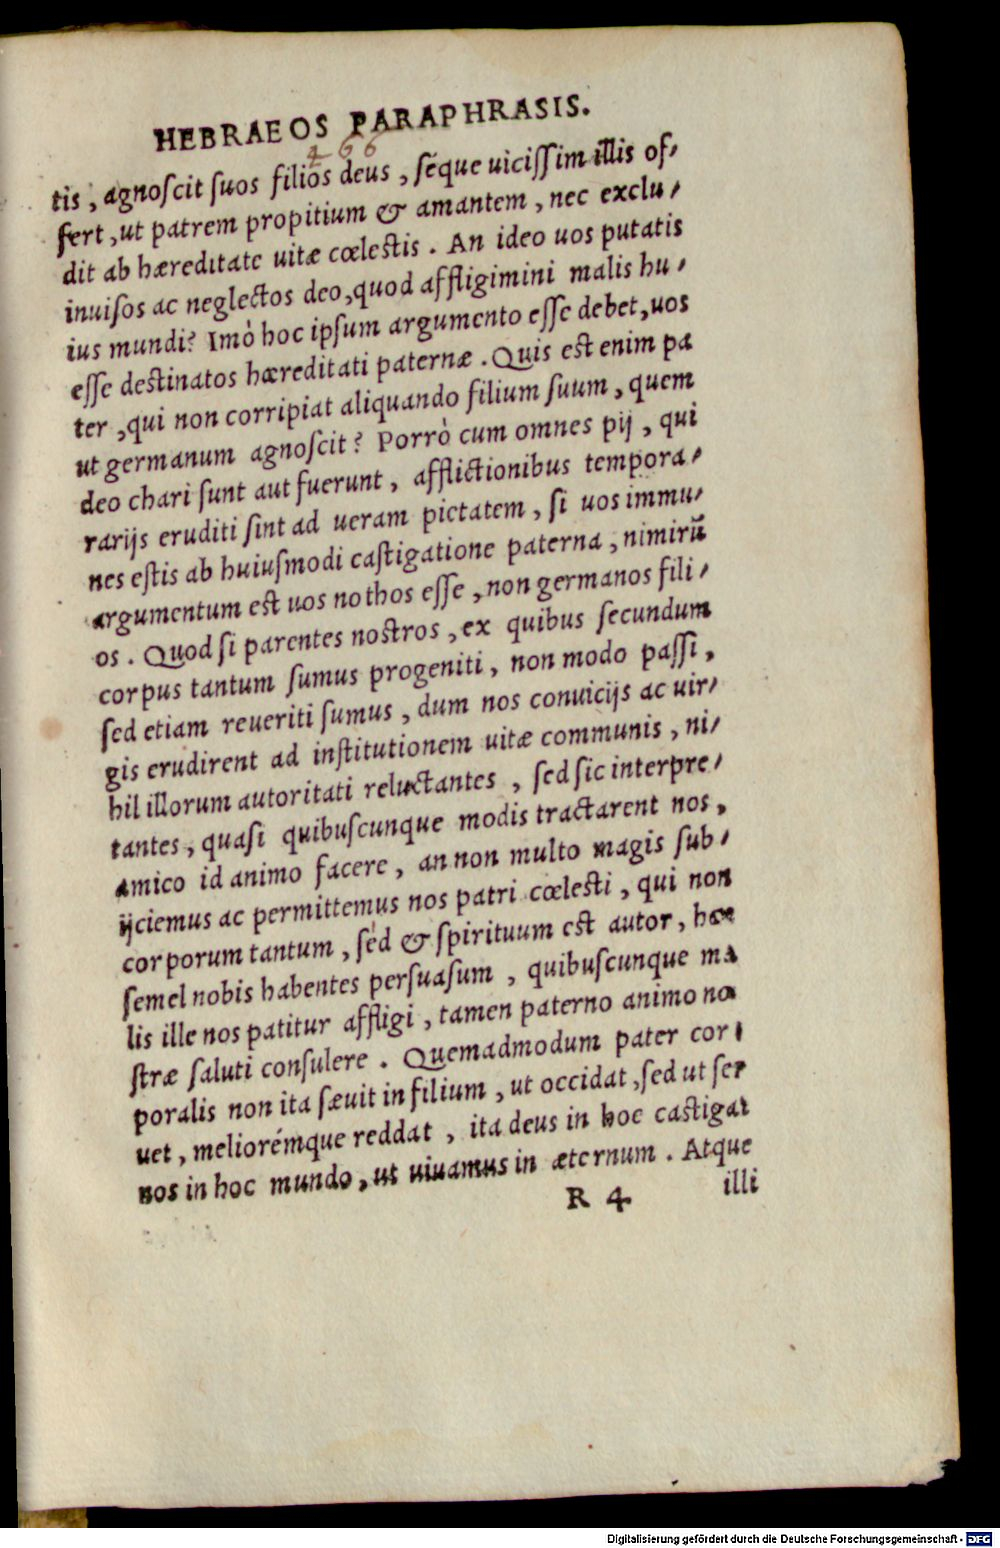 HEBRAEOS PARAPHRASIS.
466
tis, agnoſcit ſuos filios deus, ſéque uiciſſim illis of-
fert, ut patrem propitium & amantem, nec exclu-
dit ab hæreditate uitæ cœleſtis. An ideo uos putatis
inuiſos ac neglectos deo, quod affligimini malis hu-
ius mundi? Imò hoc ipſum argumento eſſe debet, uos
eſſe deſtinatos hæreditati paternæ. Quis eſt enim pa
ter, qui non corripiat aliquando filium ſuum, quem
ut germanum agnoſcit? Porrò cum omnes pij, qui
deo chari ſunt aut fuerunt, afflictionibus tempora-
rarijs eruditi ſint ad ueram pietatem, ſi uos immu-
nes eſtis ab huiuſmodi caſtigatione paterna, nimirũ
argumentum eſt uos nothos eſſe, non germanos fili-
os. Quod ſi parentes noſtros, ex quibus ſecundum
corpus tantum ſumus progeniti, non modo paſſi,
ſed etiam reueriti ſumus, dum nos conuicijs ac uir-
gis erudirent ad inſtitutionem uitæ communis, ni-
hil illorum autoritati reluctantes, ſed ſic interpre-
tantes, quaſi quibuſcunque modis tractarent nos,
amico id animo facere, an non multo magis ſub-
ijciemus ac permittemus nos patri cœleſti, qui non
corporum tantum, ſed & ſpirituum eſt autor, hoc
ſemel nobis habentes perſuaſum, quibuſcunque ma
lis ille nos patitur affligi, tamen paterno animo no
ſtræ ſaluti conſulere. Quemadmodum pater cor-
poralis non ita ſæuit in filium, ut occidat, ſed ut ſer
uet, meliorémque reddat, ita deus in hoc caſtigat
nos in hoc mundo, ut uiuamus in æternum. Atque
R 4 illi
Digitalisierung gefördert durch die Deutsche Forschungsgemeinschaft - DFG